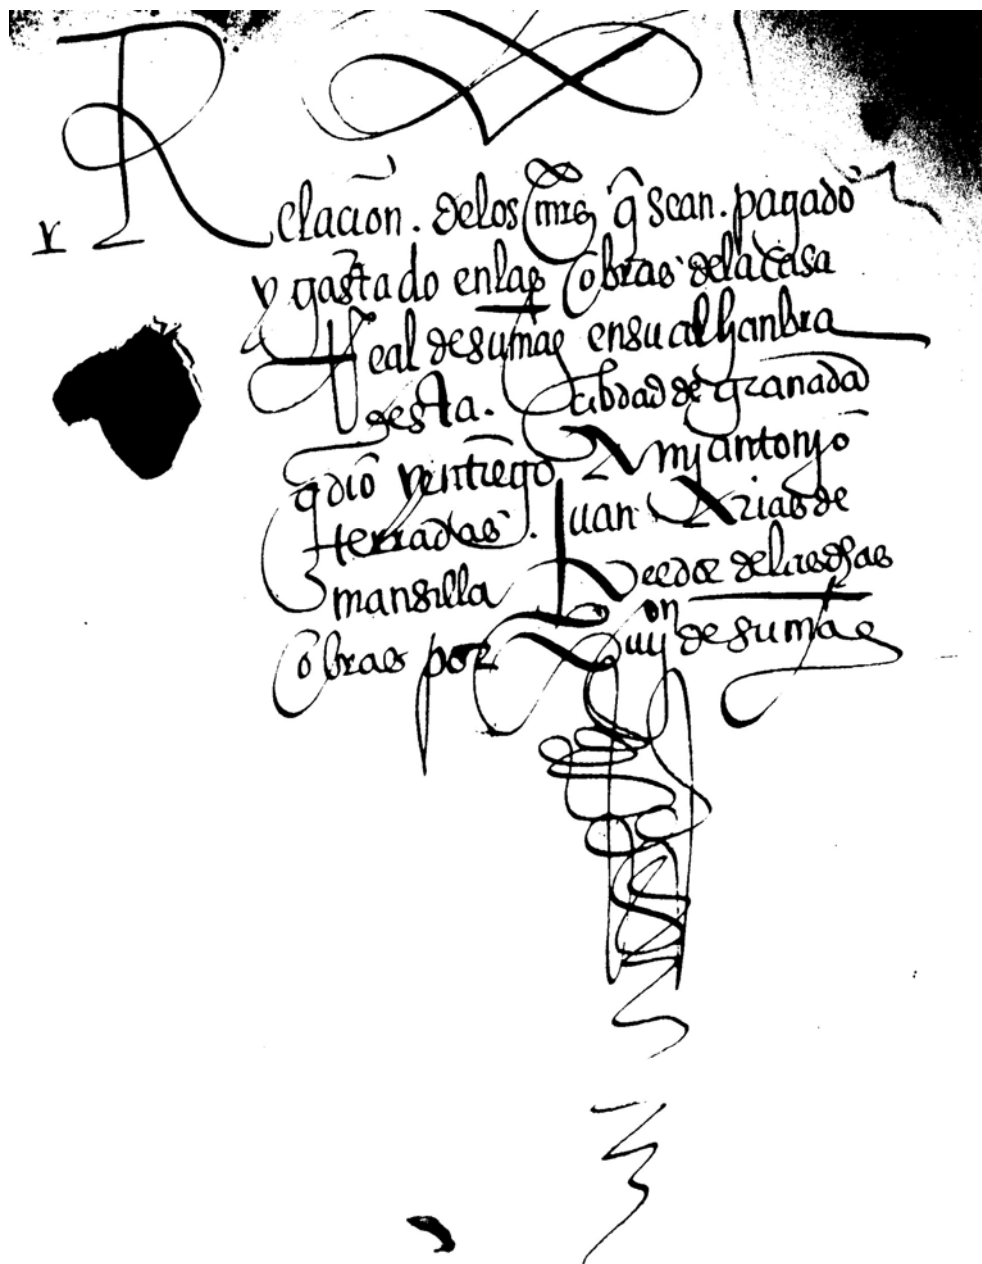 Relacion. delos mrs q̃ sean. pagado
y gastado enlas obras delacasa
Real desumag ensu alhanbra
desta. cibdad de granada
q̃ dio rentrego Any antonyo
terradas. Juan Arias de
mansilla Veedor delas dhas
obras por de su mag